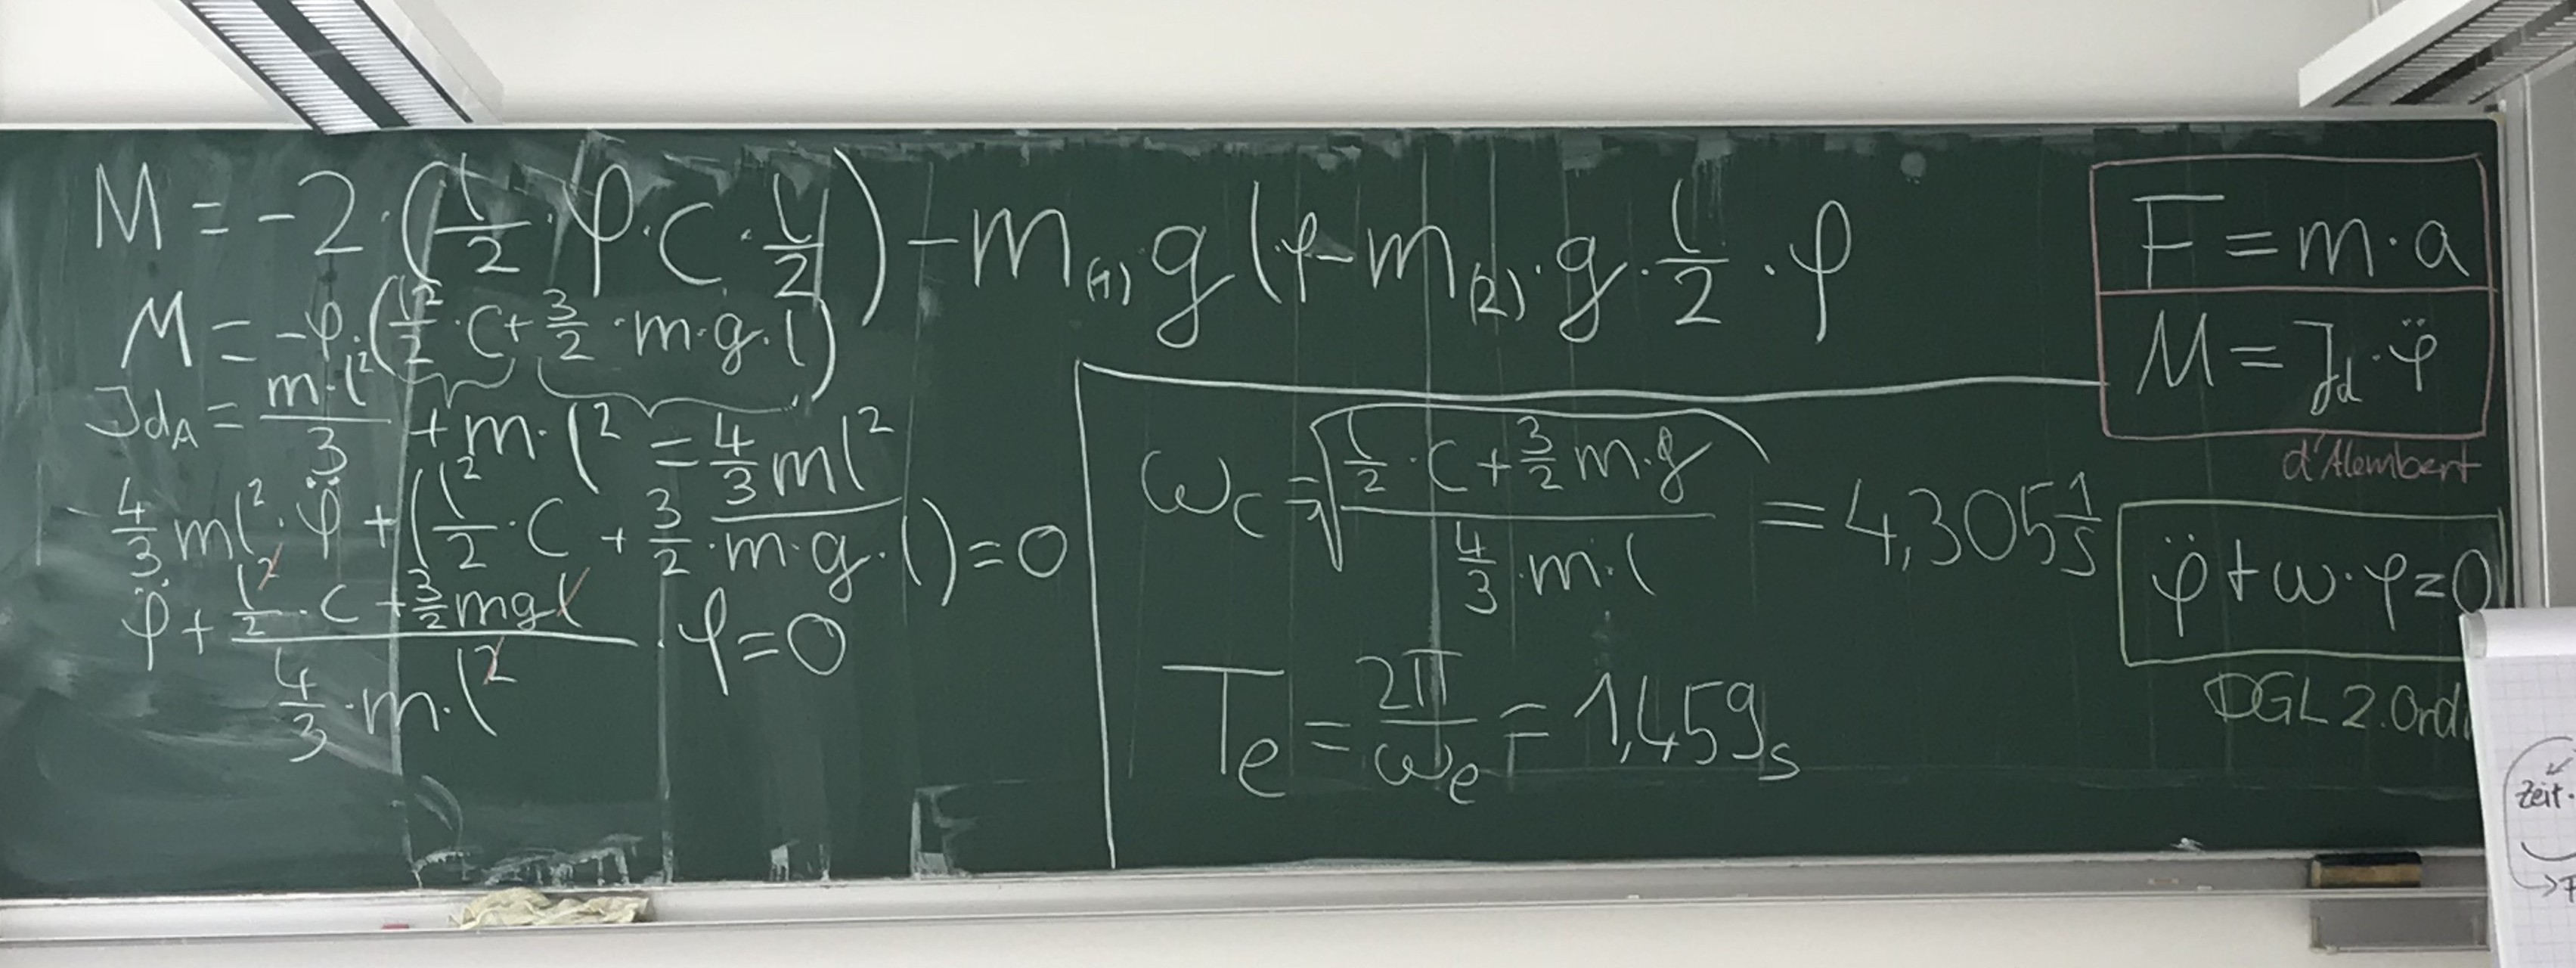 M = -2·(l/2·φ·c·l/2) - m(1) g l φ - m(2)·g·l/2·φ
M = -φ·(l²/2·c + 3/2·m·g·l)
JdA = m·l²/3 + m·l² = 4/3 ml²
4/3 ml²·φ̈ + (l²/2·c + 3/2·m·g·l) = 0
φ̈ + (l²/2·c + 3/2 mgl)/(4/3·m·l²)·φ = 0
ωe = √((l/2·c + 3/2 m·g)/(4/3·m·l)) = 4,305 1/s
Te = 2π/ωe = 1,459s
F = m·a
M = Jd·φ̈
d'Alembert
φ̈ + ω·φ = 0
DGL 2. Ord
Zeit